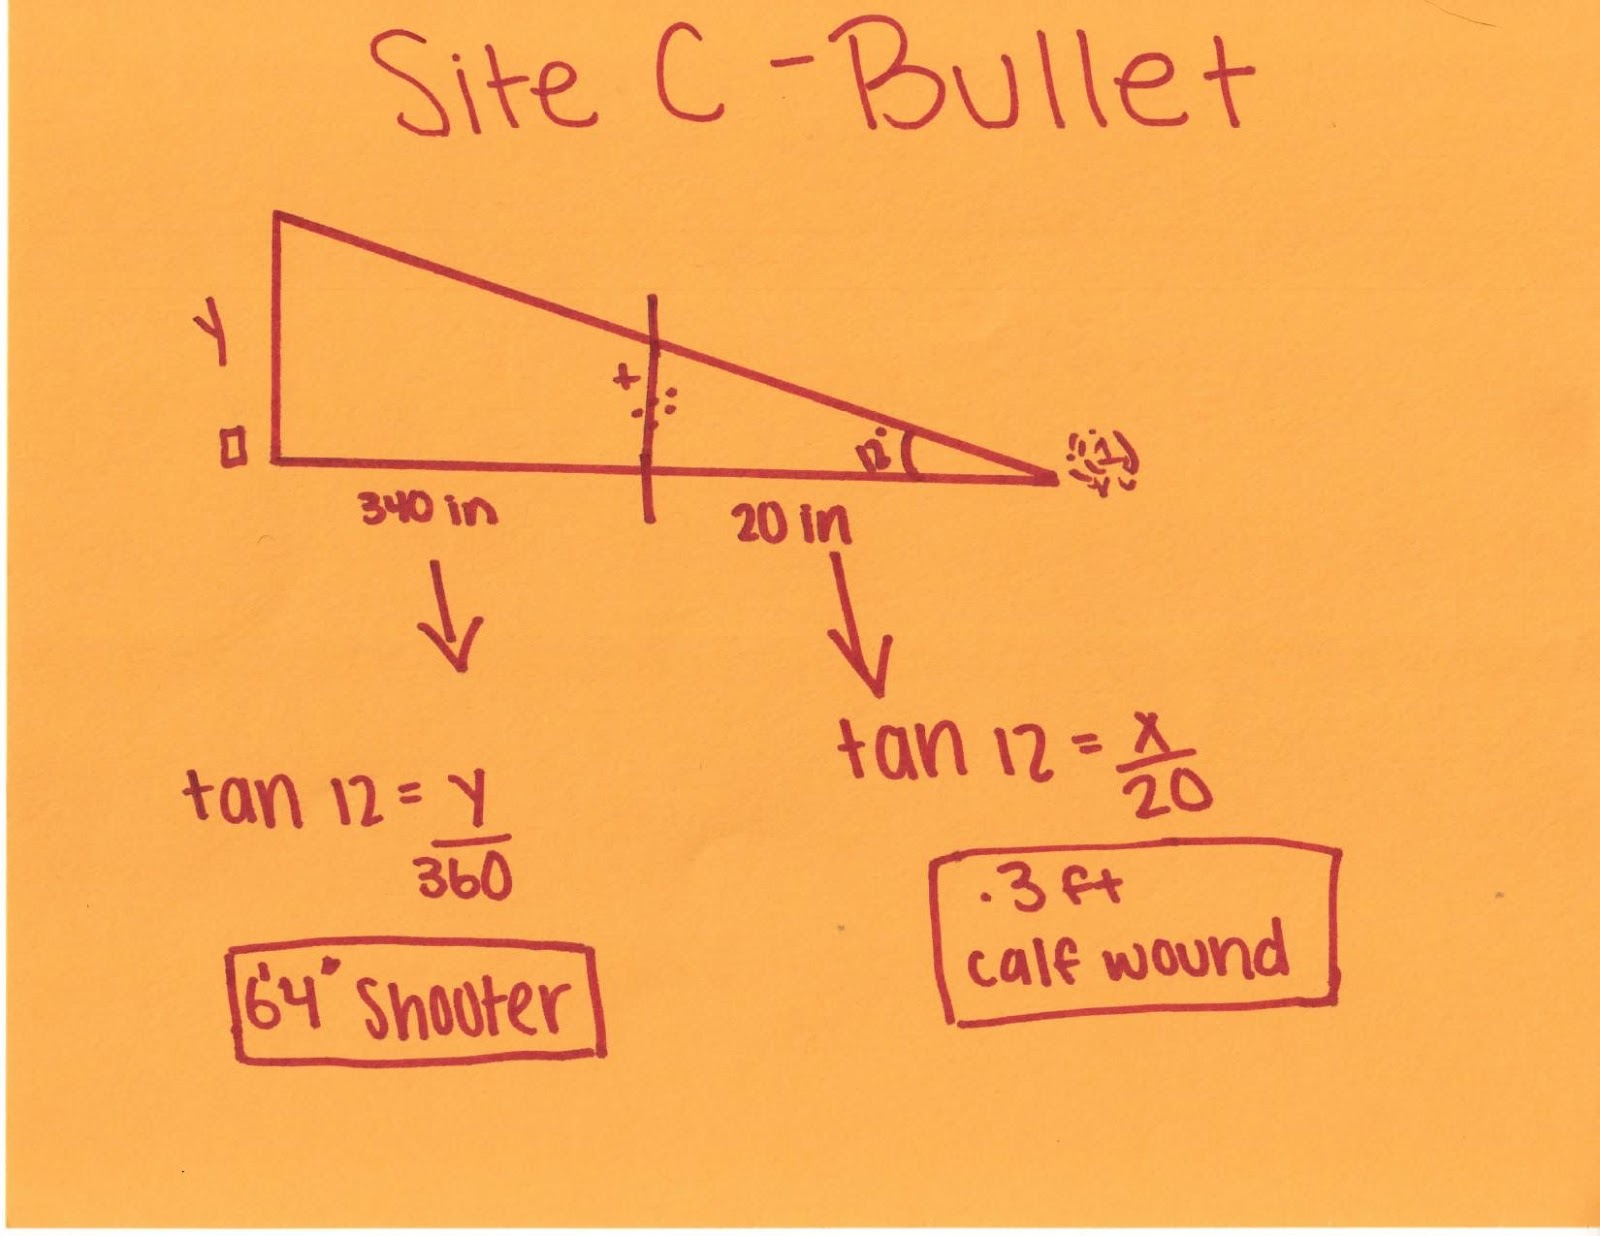 Site C - Bullet
Y
12°
340 in
20 in
tan 12 = x/20
tan 12 = y/360
.3 ft
calf wound
6'4" Shooter